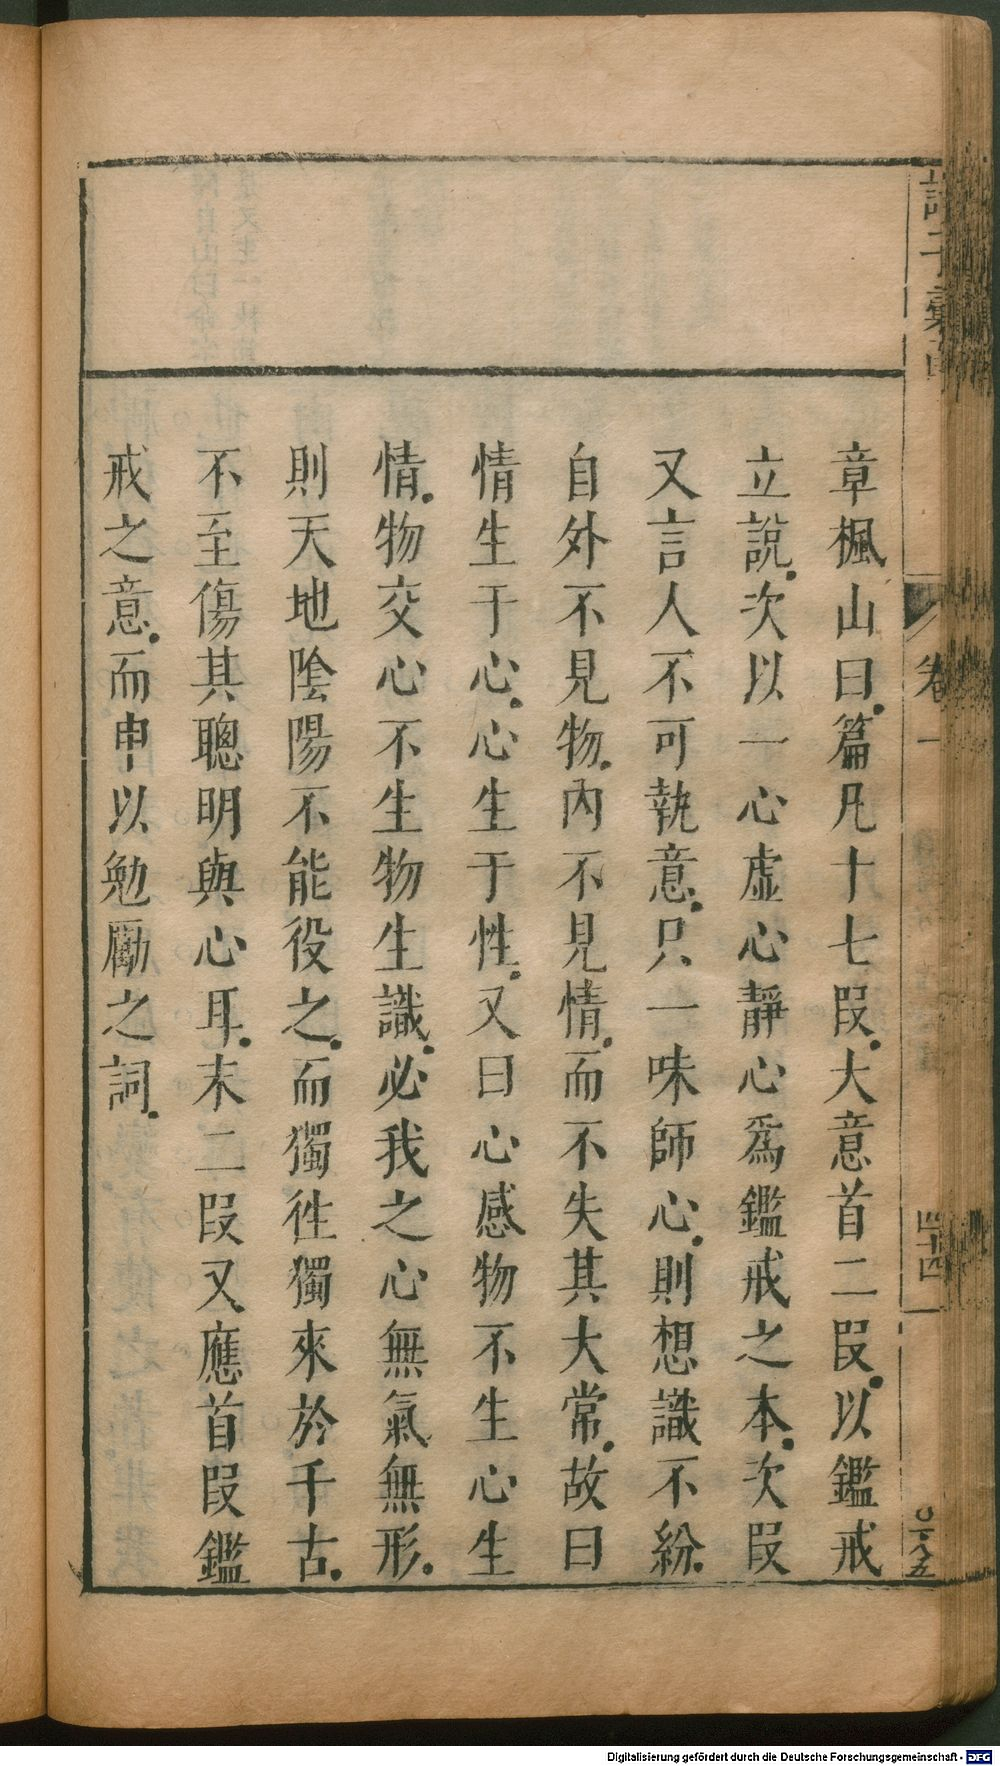 章楓山曰篇凡十七段大意首二段以鑑戒
立說次以一心虛心靜心爲鑑戒之本次段
又言人不可執意只一味師心則想識不紛
自外不見物內不見情而不失其大常故曰
情生于心心生于性又曰心感物不生心生
情物交心不生物生識必我之心無氣無形
則天地陰陽不能役之而獨徃獨來於千古
不至傷其聰明與心耳末二段又應首段鑑
戒之意而申以勉勵之詞
卷一
四十四
Digitalisierung gefördert durch die Deutsche Forschungsgemeinschaft - DFG